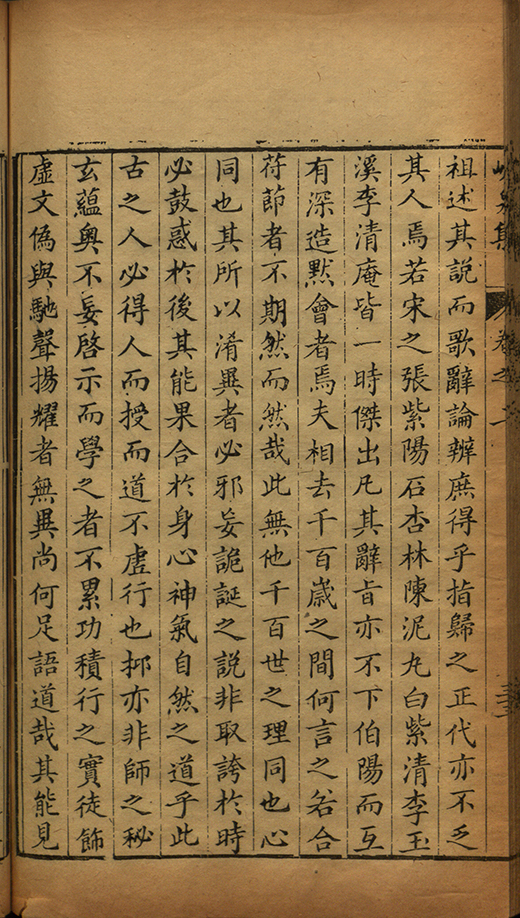 峴泉集 卷之二
祖述其說而歌辭論辨庶得乎指歸之正代亦不乏
其人焉若宋之張紫陽石杏林陳泥丸白紫清李玉
溪李清庵皆一時傑出凡其辭旨亦不下伯陽而互
有深造默會者焉夫相去千百歲之間何言之若合
符節者不期然而然哉此無他千百世之理同也心
同也其所以淆異者必邪妄詭誕之說非取誇於時
必鼓惑於後其能果合於身心神氣自然之道乎此
古之人必得人而授而道不虛行也抑亦非師之秘
玄蘊奧不妄啓示而學之者不累功積行之實徒飾
虛文僞與馳聲揚耀者無異尚何足語道哉其能見